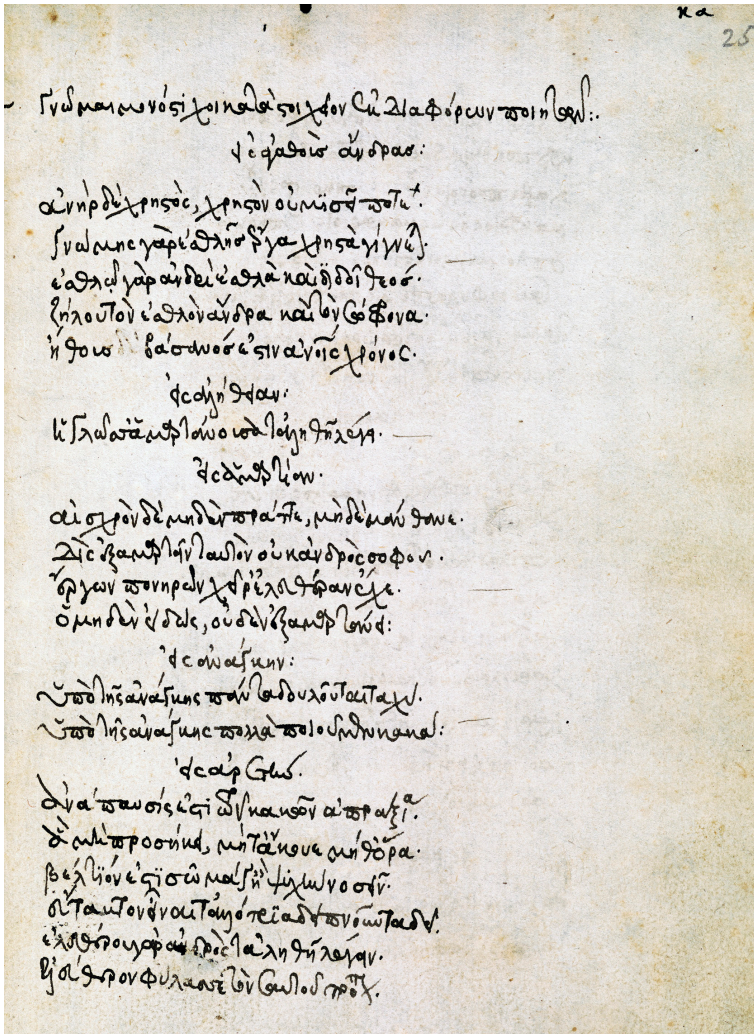 κα
25
Γνῶμαι μονόστιχοι κατὰ στοιχεῖον ἐκ διαφόρων ποιητῶν:
εἰς ἀγαθοὺς ἄνδρας:
ἀνὴρ δὲ χρηστὸς, χρηστὸν οὐ μισεῖ ποτε.
γνώμης γὰρ ἐσθλῆς ἔργα χρηστὰ γίγνεται.
ἐσθλῷ γὰρ ἀνδρὶ ἐσθλὰ καὶ διδοῖ θεός.
ζήλου τὸν ἐσθλὸν ἄνδρα καὶ τὸν σώφρονα.
ἤθους βάσανός ἐστιν ἀνοις χρόνος.
εἰς ἀλήθειαν:
εἰς ἁμαρτίαν.
αἰσχρὸν δὲ μηδὲν πρᾶττε, μηδὲ μάνθανε.
Δὶς ἐξαμαρτεῖν ταυτὸν οὐκ ἀνδρὸς σοφοῦ.
ἔργων πονηρῶν χεῖρ' ἐλευθέραν ἔχε.
ὁ μηδὲν εἰδὼς, οὐδὲν ἐξαμαρτάνει:
εἰς ἀνάγκην:
Ὑπὸ τῆς ἀνάγκης πάντα δουλοῦται ταχύ.
Ὑπὸ τῆς ἀνάγκης πολλὰ ποιοῦμεν κακά:
εἰς ἀρετὴν.
Ἀνάπαυσίς ἐστι τῶν κακῶν ἀπραξία.
ἃ μὴ προσήκει, μήτ' ἄκουε μήθ' ὅρα.
βέλτιόν ἐστι σῶμά γ' ἢ ψυχὴν νοσεῖν.
ἐλευθέρου γὰρ ἀνδρὸς τἀληθῆ λέγειν.